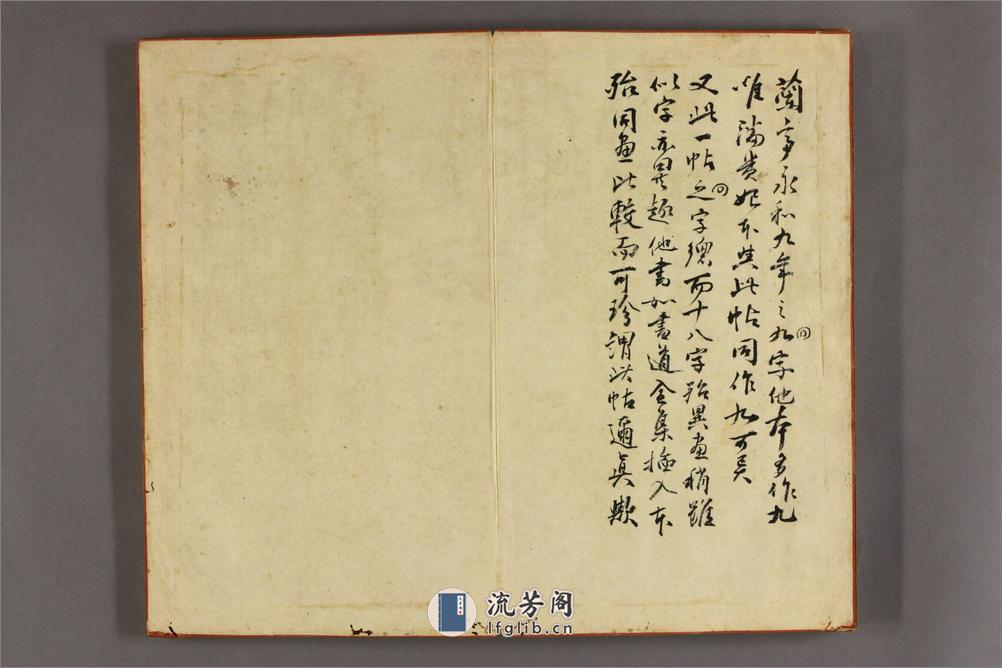 蘭亭永和九年之九字他本多作九
唯潘貴妃本與此帖同作九可異
又此一帖之字總而十八字殆異畫稍雖
似字亦異趣他書如書道全集挿入本
殆同画比較而可珍謂此帖逼真歟
流芳阁
lfglib.cn